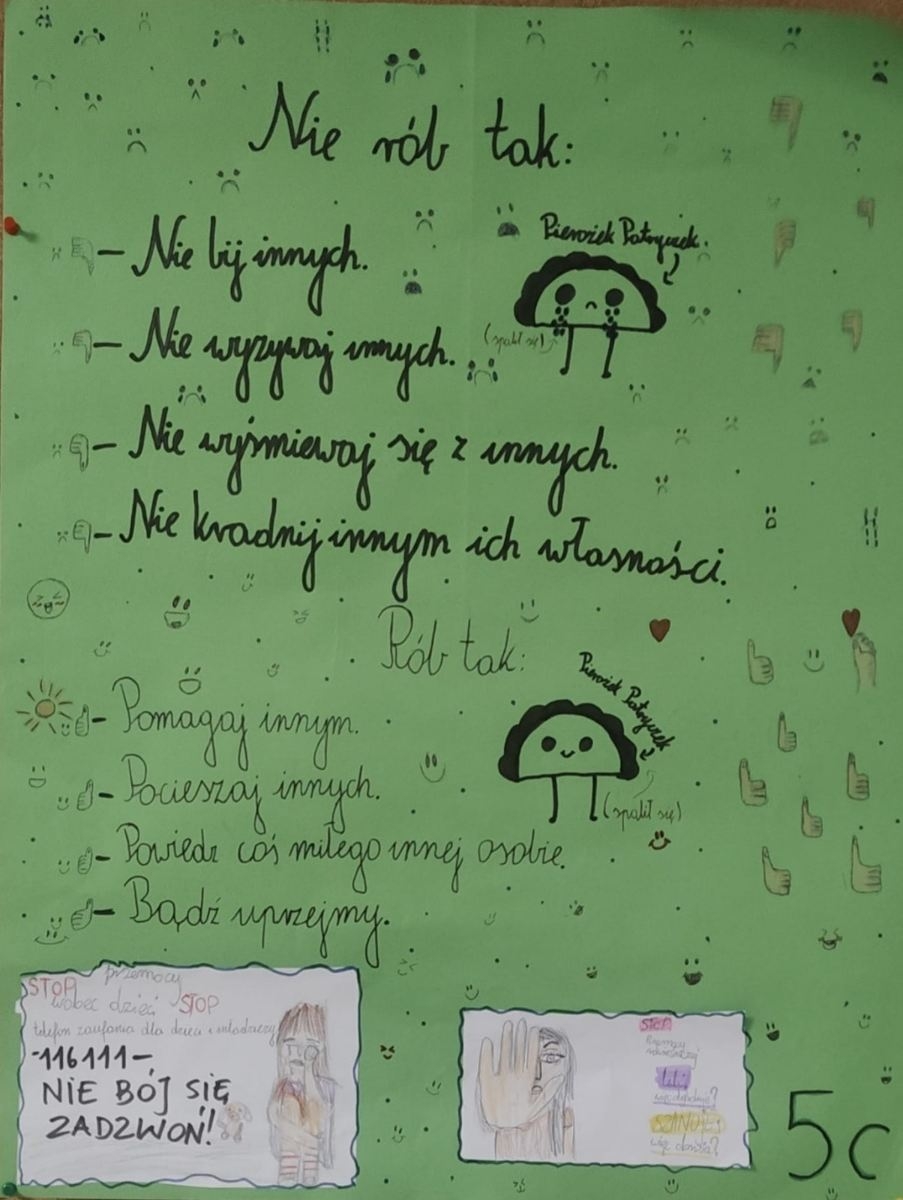 Nie rób tak:
– Nie bij innych.
Pierożek Patryczek.
– Nie wyzywaj innych.
(spalił się)
– Nie wyśmiewaj się z innych.
– Nie kradnij innym ich własności.
Rób tak:
Pierożek Patryczek
– Pomagaj innym.
– Pocieszaj innych.
(spalił się)
– Powiedz coś miłego innej osobie.
– Bądź uprzejmy.
STOP przemocy
wobec dzieci STOP
telefon zaufania dla dzieci i młodzieży
-116111-
NIE BÓJ SIĘ
ZADZWOŃ!
STOP
5c